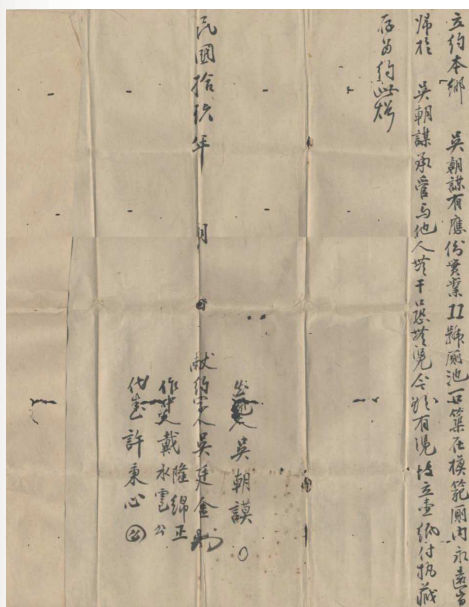 立約本鄉 吳朝謀有應份實業11號廁池一口築在模範廁內永遠當
歸於 吳朝謀承管與他人無干口恐無憑今欲有憑特立壹紙付執藏
存為約此炤
民國拾玖年 月 日
吳朝謨
獻約字人吳廷金
作中 戴隆錦正
永雲公
代書許東心